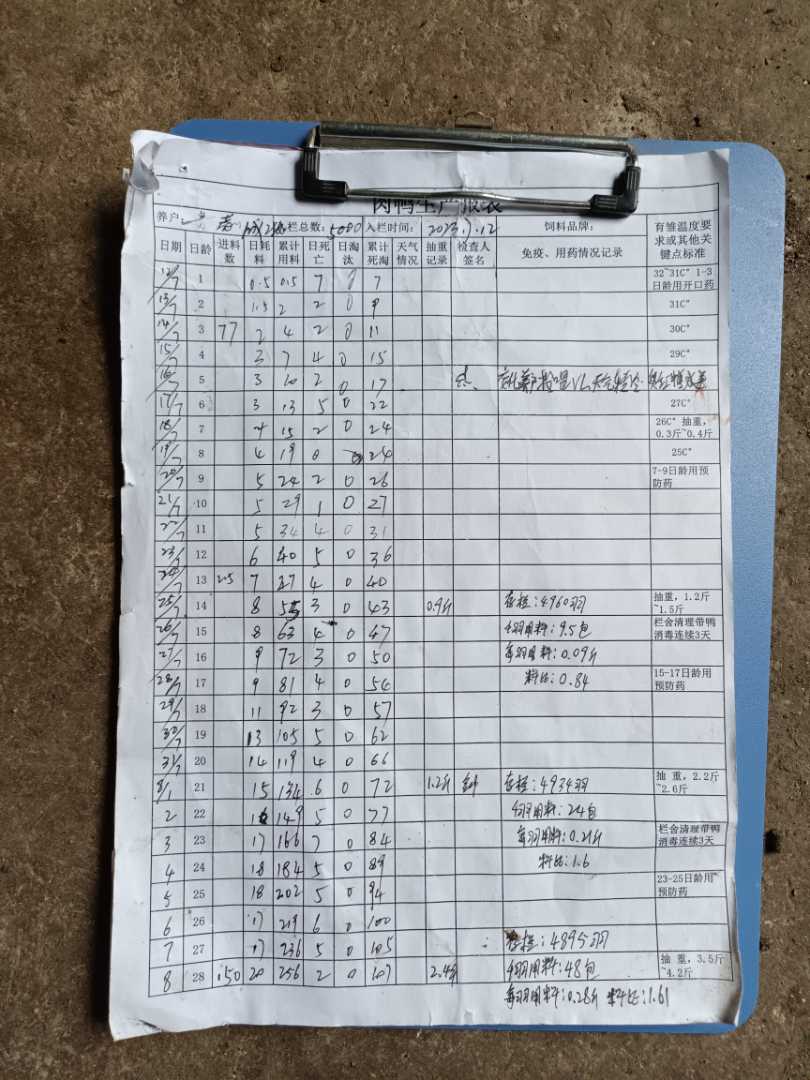 肉鸭生产报表
养户 栏总数: 5000 入栏时间: 2023.7.12 饲料品牌: 有雏温度要求或其他关键点标准
日期 日龄 进料数 日耗料 累计用料 日死亡 日淘汰 累计死淘 天气情况 抽重记录 检查人签名 免疫、用药情况记录
12/7 1 0.5 0.5 7 0 7 32~31C° 1-3日龄用开口药
13/7 2 1.5 2 2 0 9 31C°
14/7 3 77 2 4 2 0 11 30C°
15/7 4 3 7 4 0 15 29C°
16/7 5 3 10 2 0 17
17/7 6 3 13 5 0 22 27C°
18/7 7 15 2 0 24 26C° 抽重,0.3斤~0.4斤
19/7 8 4 19 0 24 25C°
20/7 9 5 24 2 0 26 7-9日龄用预防药
21/7 10 5 29 1 0 27
22/7 11 5 34 4 0 31
23/7 12 6 40 5 0 36
24/7 13 205 7 47 4 0 40
25/7 14 8 55 3 0 43 0.9斤 存栏:4960羽 抽重,1.2斤~1.5斤
26/7 15 8 63 4 0 47 今羽用料:9.5包 栏舍清理带鸭消毒连续3天
27/7 16 9 72 3 0 50 每羽用料:0.09斤
28/7 17 9 81 4 0 54 料比:0.84 15-17日龄用预防药
29/7 18 11 92 3 0 57
30/7 19 13 105 5 0 62
31/7 20 14 119 4 0 66
8/1 21 15 134 6 0 72 1.2斤 存栏:4934羽 抽重,2.2斤~2.6斤
2 22 149 5 0 77 今羽用料:24包
3 23 17 166 7 0 84 每羽用料:0.21斤 栏舍清理带鸭消毒连续3天
4 24 18 184 5 0 89 料比:1.6
5 25 18 202 5 0 94 23-25日龄用预防药
6 26 17 219 6 0 100
7 27 17 236 5 0 105 存栏:4895羽
8 28 150 20 256 2 0 107 2.4斤 今羽用料:48包 抽重,3.5斤~4.2斤
每羽用料:0.28斤 料比:1.61